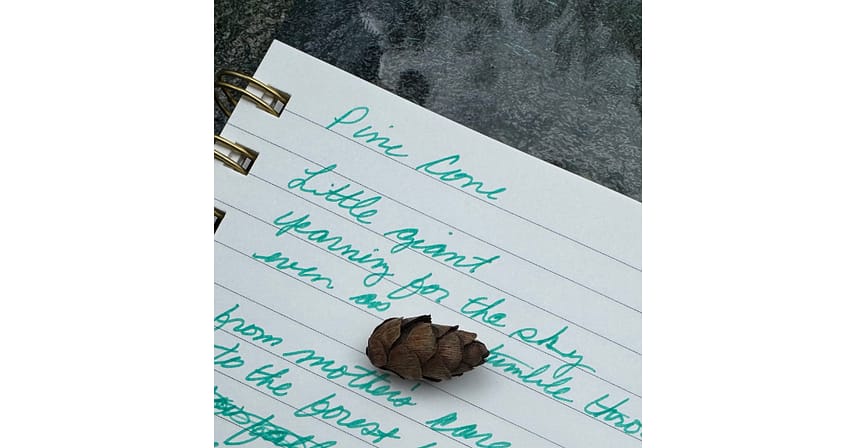 Pine Cone
Little giant
yearning for the sky
even as tumble
from mother's
to the forest